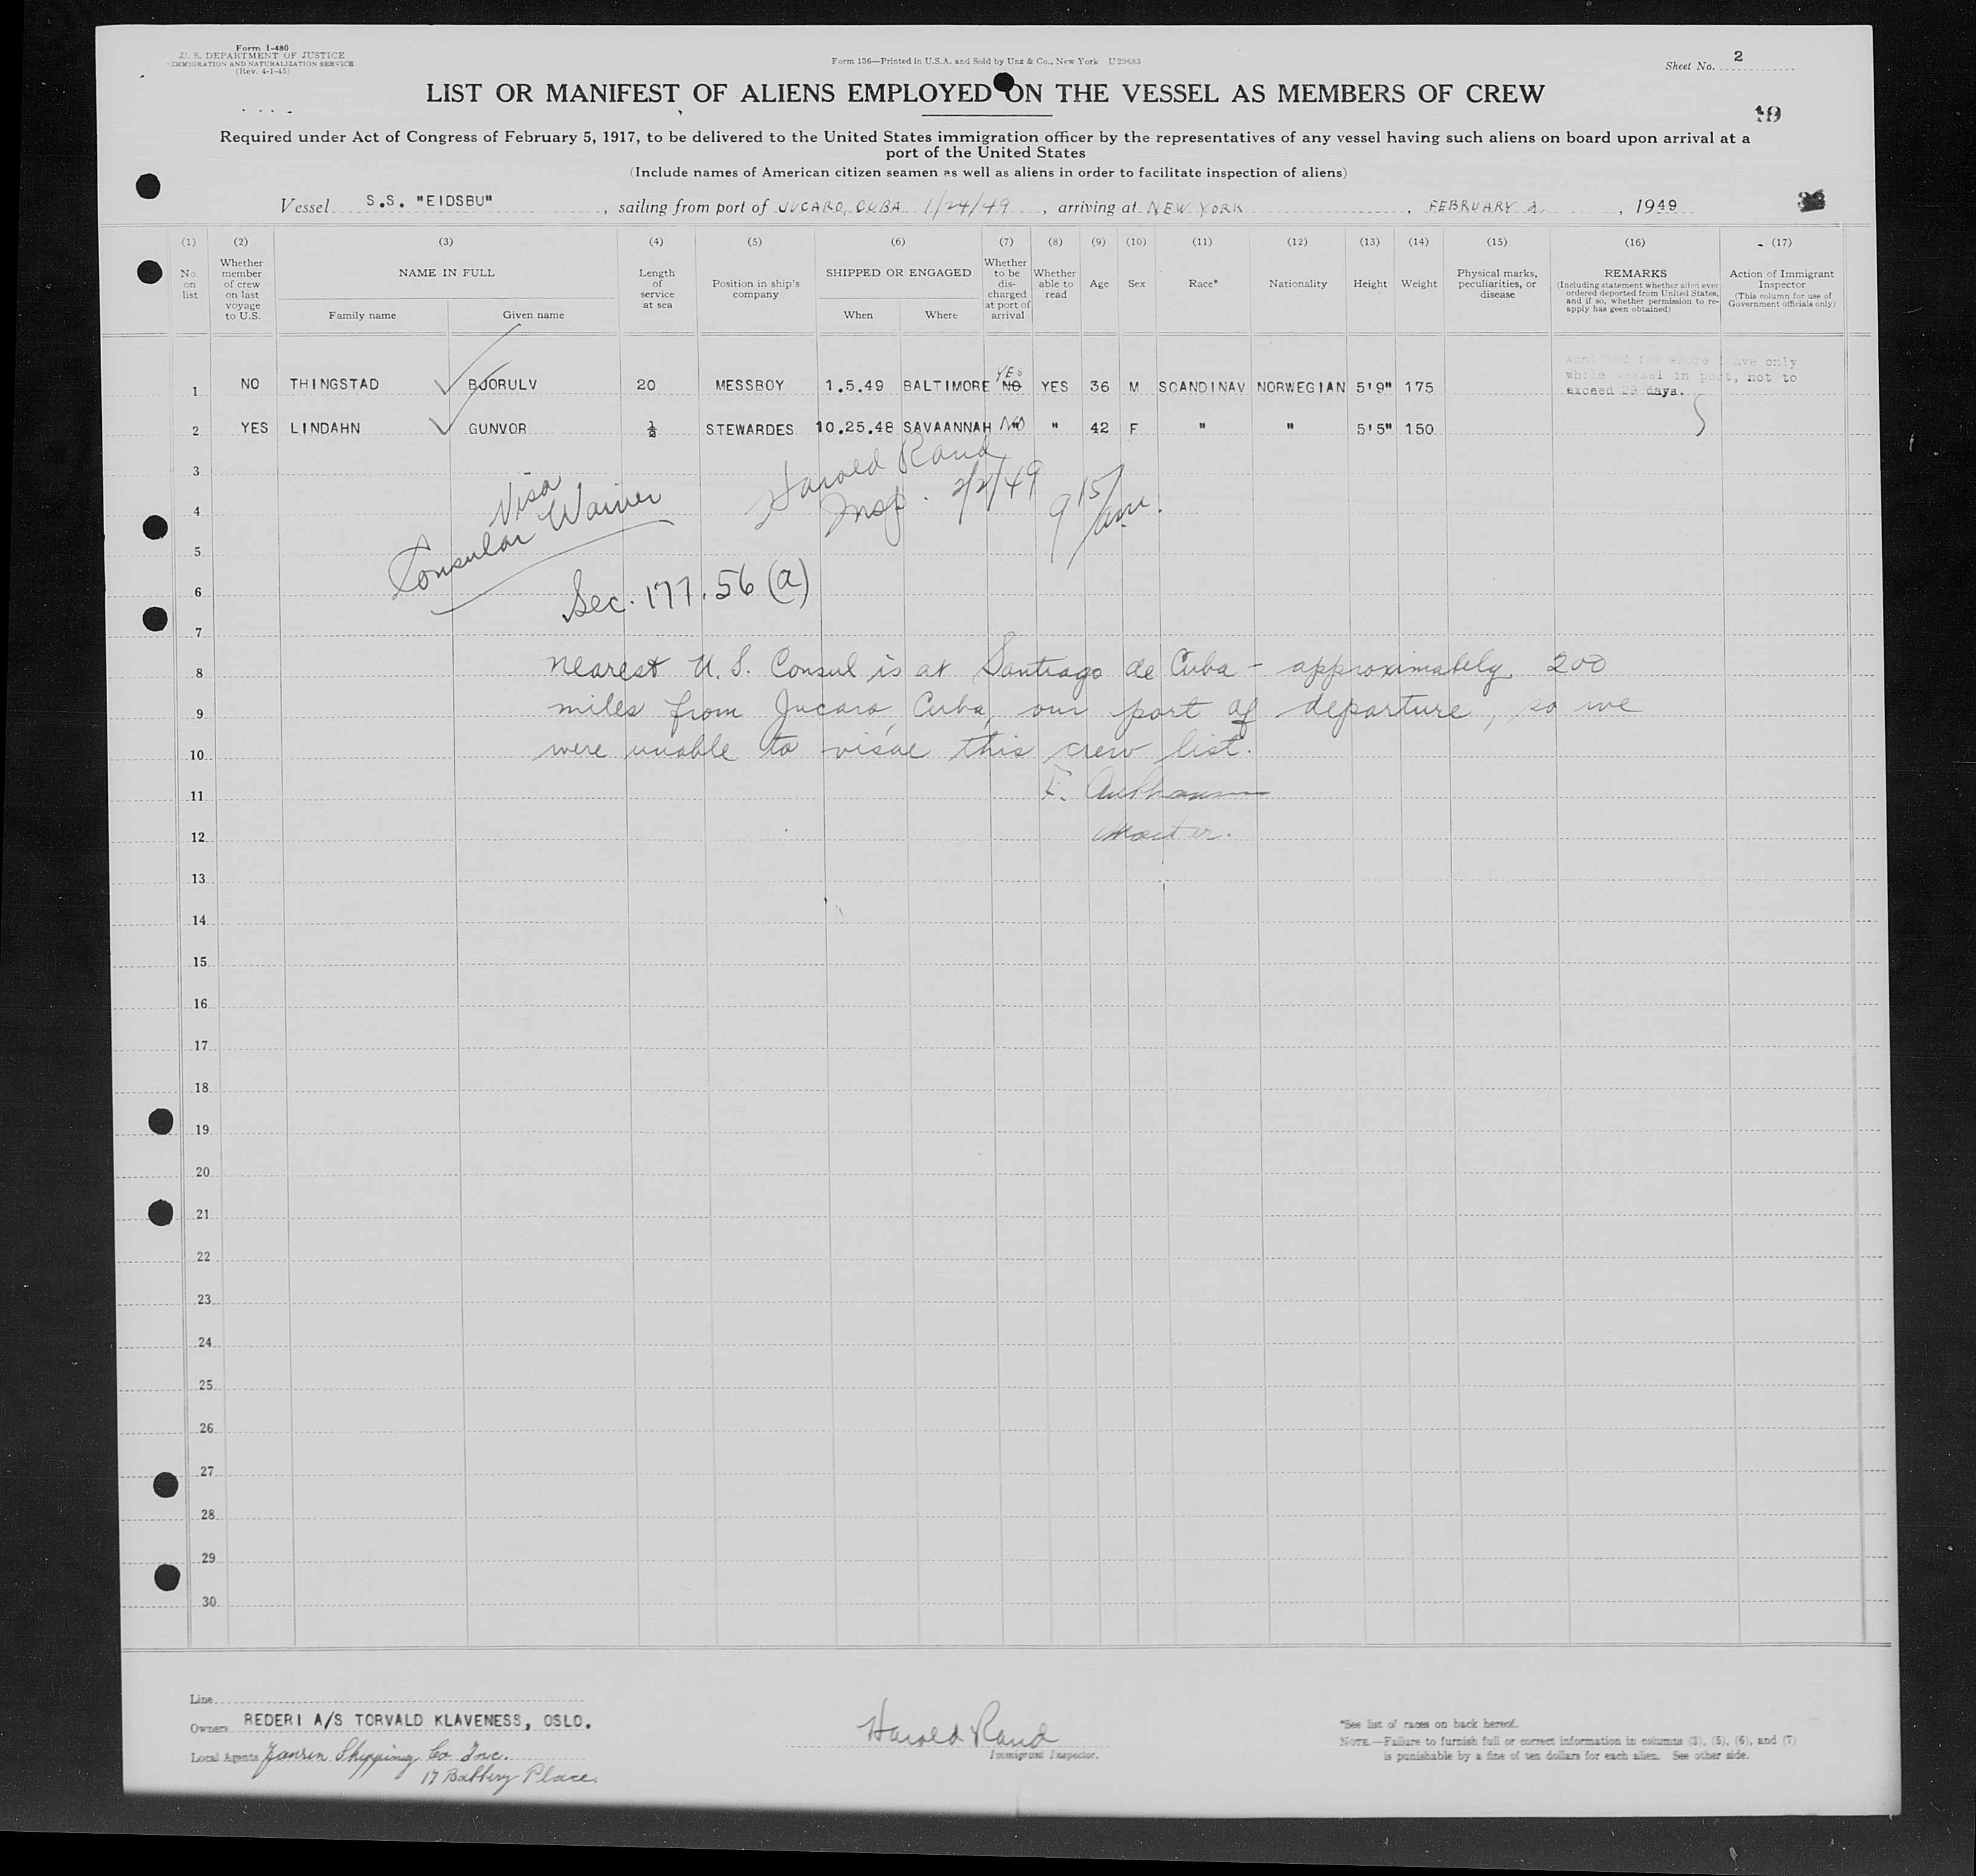 Form I-480
U. S. DEPARTMENT OF JUSTICE
IMMIGRATION AND NATURALIZATION SERVICE
(Rev. 4-1-45)
Form 136—Printed in U.S.A. and Sold by Unz & Co., New York U29683
Sheet No. 2
LIST OR MANIFEST OF ALIENS EMPLOYED ON THE VESSEL AS MEMBERS OF CREW
19
Required under Act of Congress of February 5, 1917, to be delivered to the United States immigration officer by the representatives of any vessel having such aliens on board upon arrival at a
port of the United States
(Include names of American citizen seamen as well as aliens in order to facilitate inspection of aliens)
Vessel S.S. "EIDSBU", sailing from port of JUCARO, CUBA 1/24/49, arriving at NEW YORK, FEBRUARY 2, 1949
(1) (2) (3) (4) (5) (6) (7) (8) (9) (10) (11) (12) (13) (14) (15) (16) (17)
No. on list
Whether member of crew on last voyage to U.S.
NAME IN FULL
Family name
Given name
Length of service at sea
Position in ship's company
SHIPPED OR ENGAGED
When
Where
Whether to be discharged at port of arrival
Whether able to read
Age
Sex
Race*
Nationality
Height
Weight
Physical marks, peculiarities, or disease
REMARKS
(Including statement whether alien ever ordered deported from United States, and if so, whether permission to re-apply has geen obtained)
Action of Immigrant Inspector
(This column for use of Government officials only)
Admitted for shore leave only
while vessel in port, not to
exceed 29 days.
YES
1 NO THINGSTAD BJORULV 20 MESSBOY 1.5.49 BALTIMORE NO YES 36 M SCANDINAV NORWEGIAN 5'9" 175
2 YES LINDAHN GUNVOR ½ STEWARDES 10.25.48 SAVAANNAH NO " 42 F " " 5'5" 150
3
4
5
6
7
8
9
10
11
12
13
14
15
16
17
18
19
20
21
22
23
24
25
26
27
28
29
30
Harold Rand
Insp. 2/2/49 9 15/am.
Visa
Consular Waiver
Sec. 177.56 (a)
nearest U. S. Consul is at Santiago de Cuba - approximately 200
miles from Jucaro, Cuba, our port of departure, so we
were unable to visae this crew list.
Master.
Line
Owners REDERI A/S TORVALD KLAVENESS, OSLO.
Local Agents Jansen Shipping Co Inc.
17 Battery Place.
Harold Rand
Immigrant Inspector.
*See list of races on back hereof.
NOTE.—Failure to furnish full or correct information in columns (3), (5), (6), and (7)
is punishable by a fine of ten dollars for each alien. See other side.